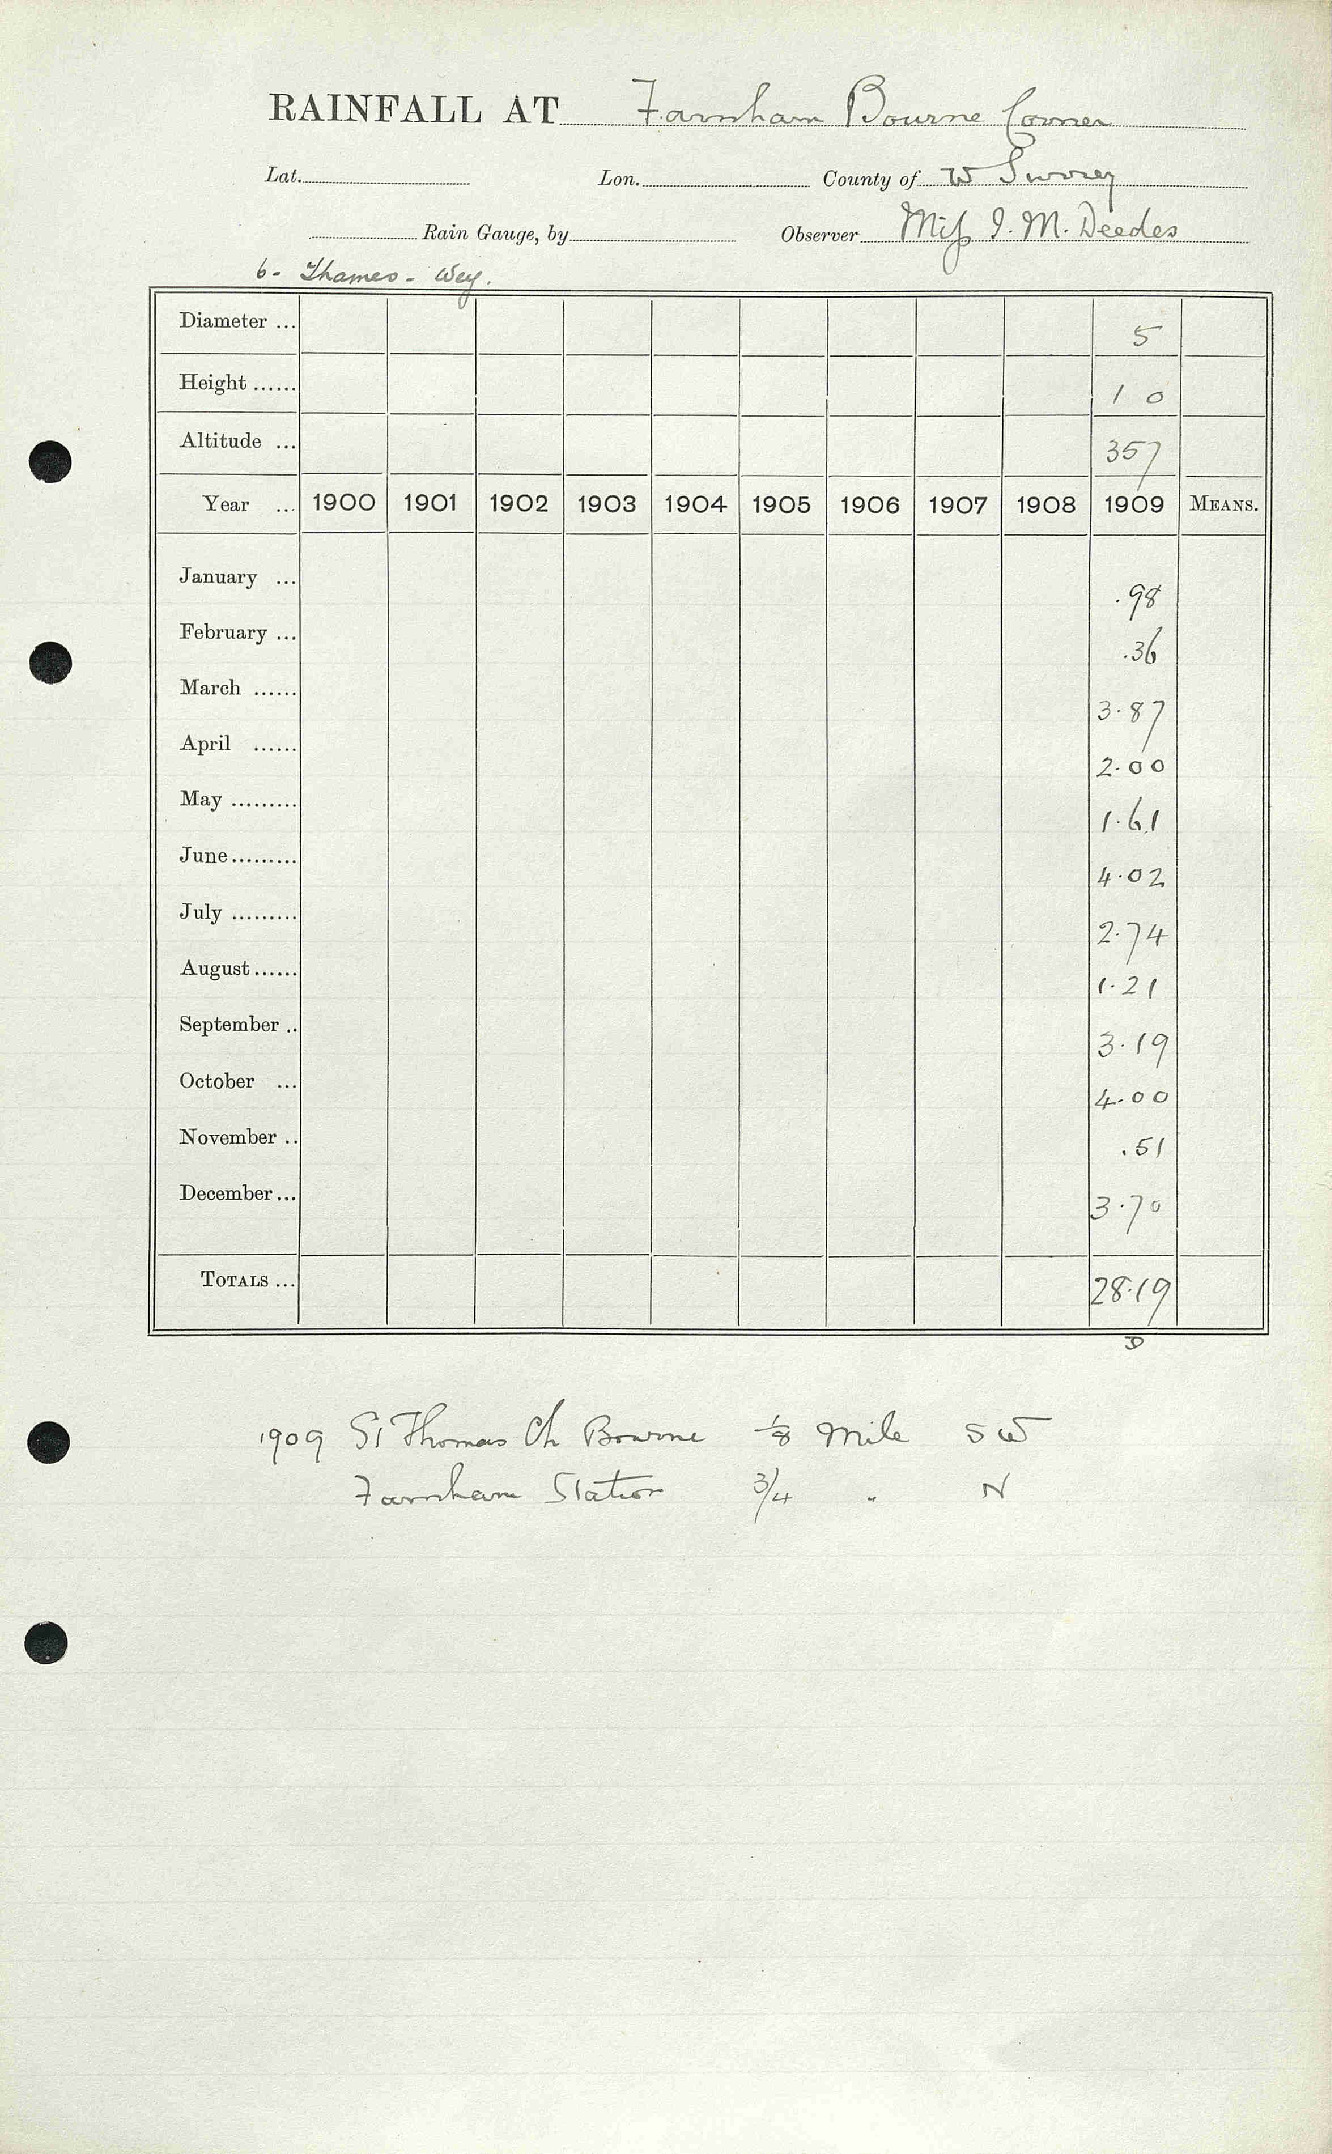 RAINFALL AT Farnham Bourne Corner
Lat. Lon. County of W Surrey
Rain Gauge, by Observer Miss I. M. Deedes
6 - Thames - Wey.
Diameter ... 5
Height ...... 1 0
Altitude ... 357
Year ... 1900 1901 1902 1903 1904 1905 1906 1907 1908 1909 MEANS.
January ... .98
February ... .36
March ...... 3.87
April ...... 2.00
May ......... 1.61
June ......... 4.02
July ......... 2.74
August ...... 1.21
September .. 3.19
October ... 4.00
November .. .51
December ... 3.70
TOTALS ... 28.19
D
1909 St Thomas Ch Bourne 1/8 Mile SW
Farnham Station 3/4 " N